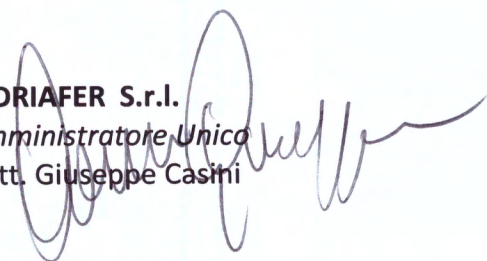 DRIAFER S.r.l.
mministratore Unico
tt. Giuseppe Casini